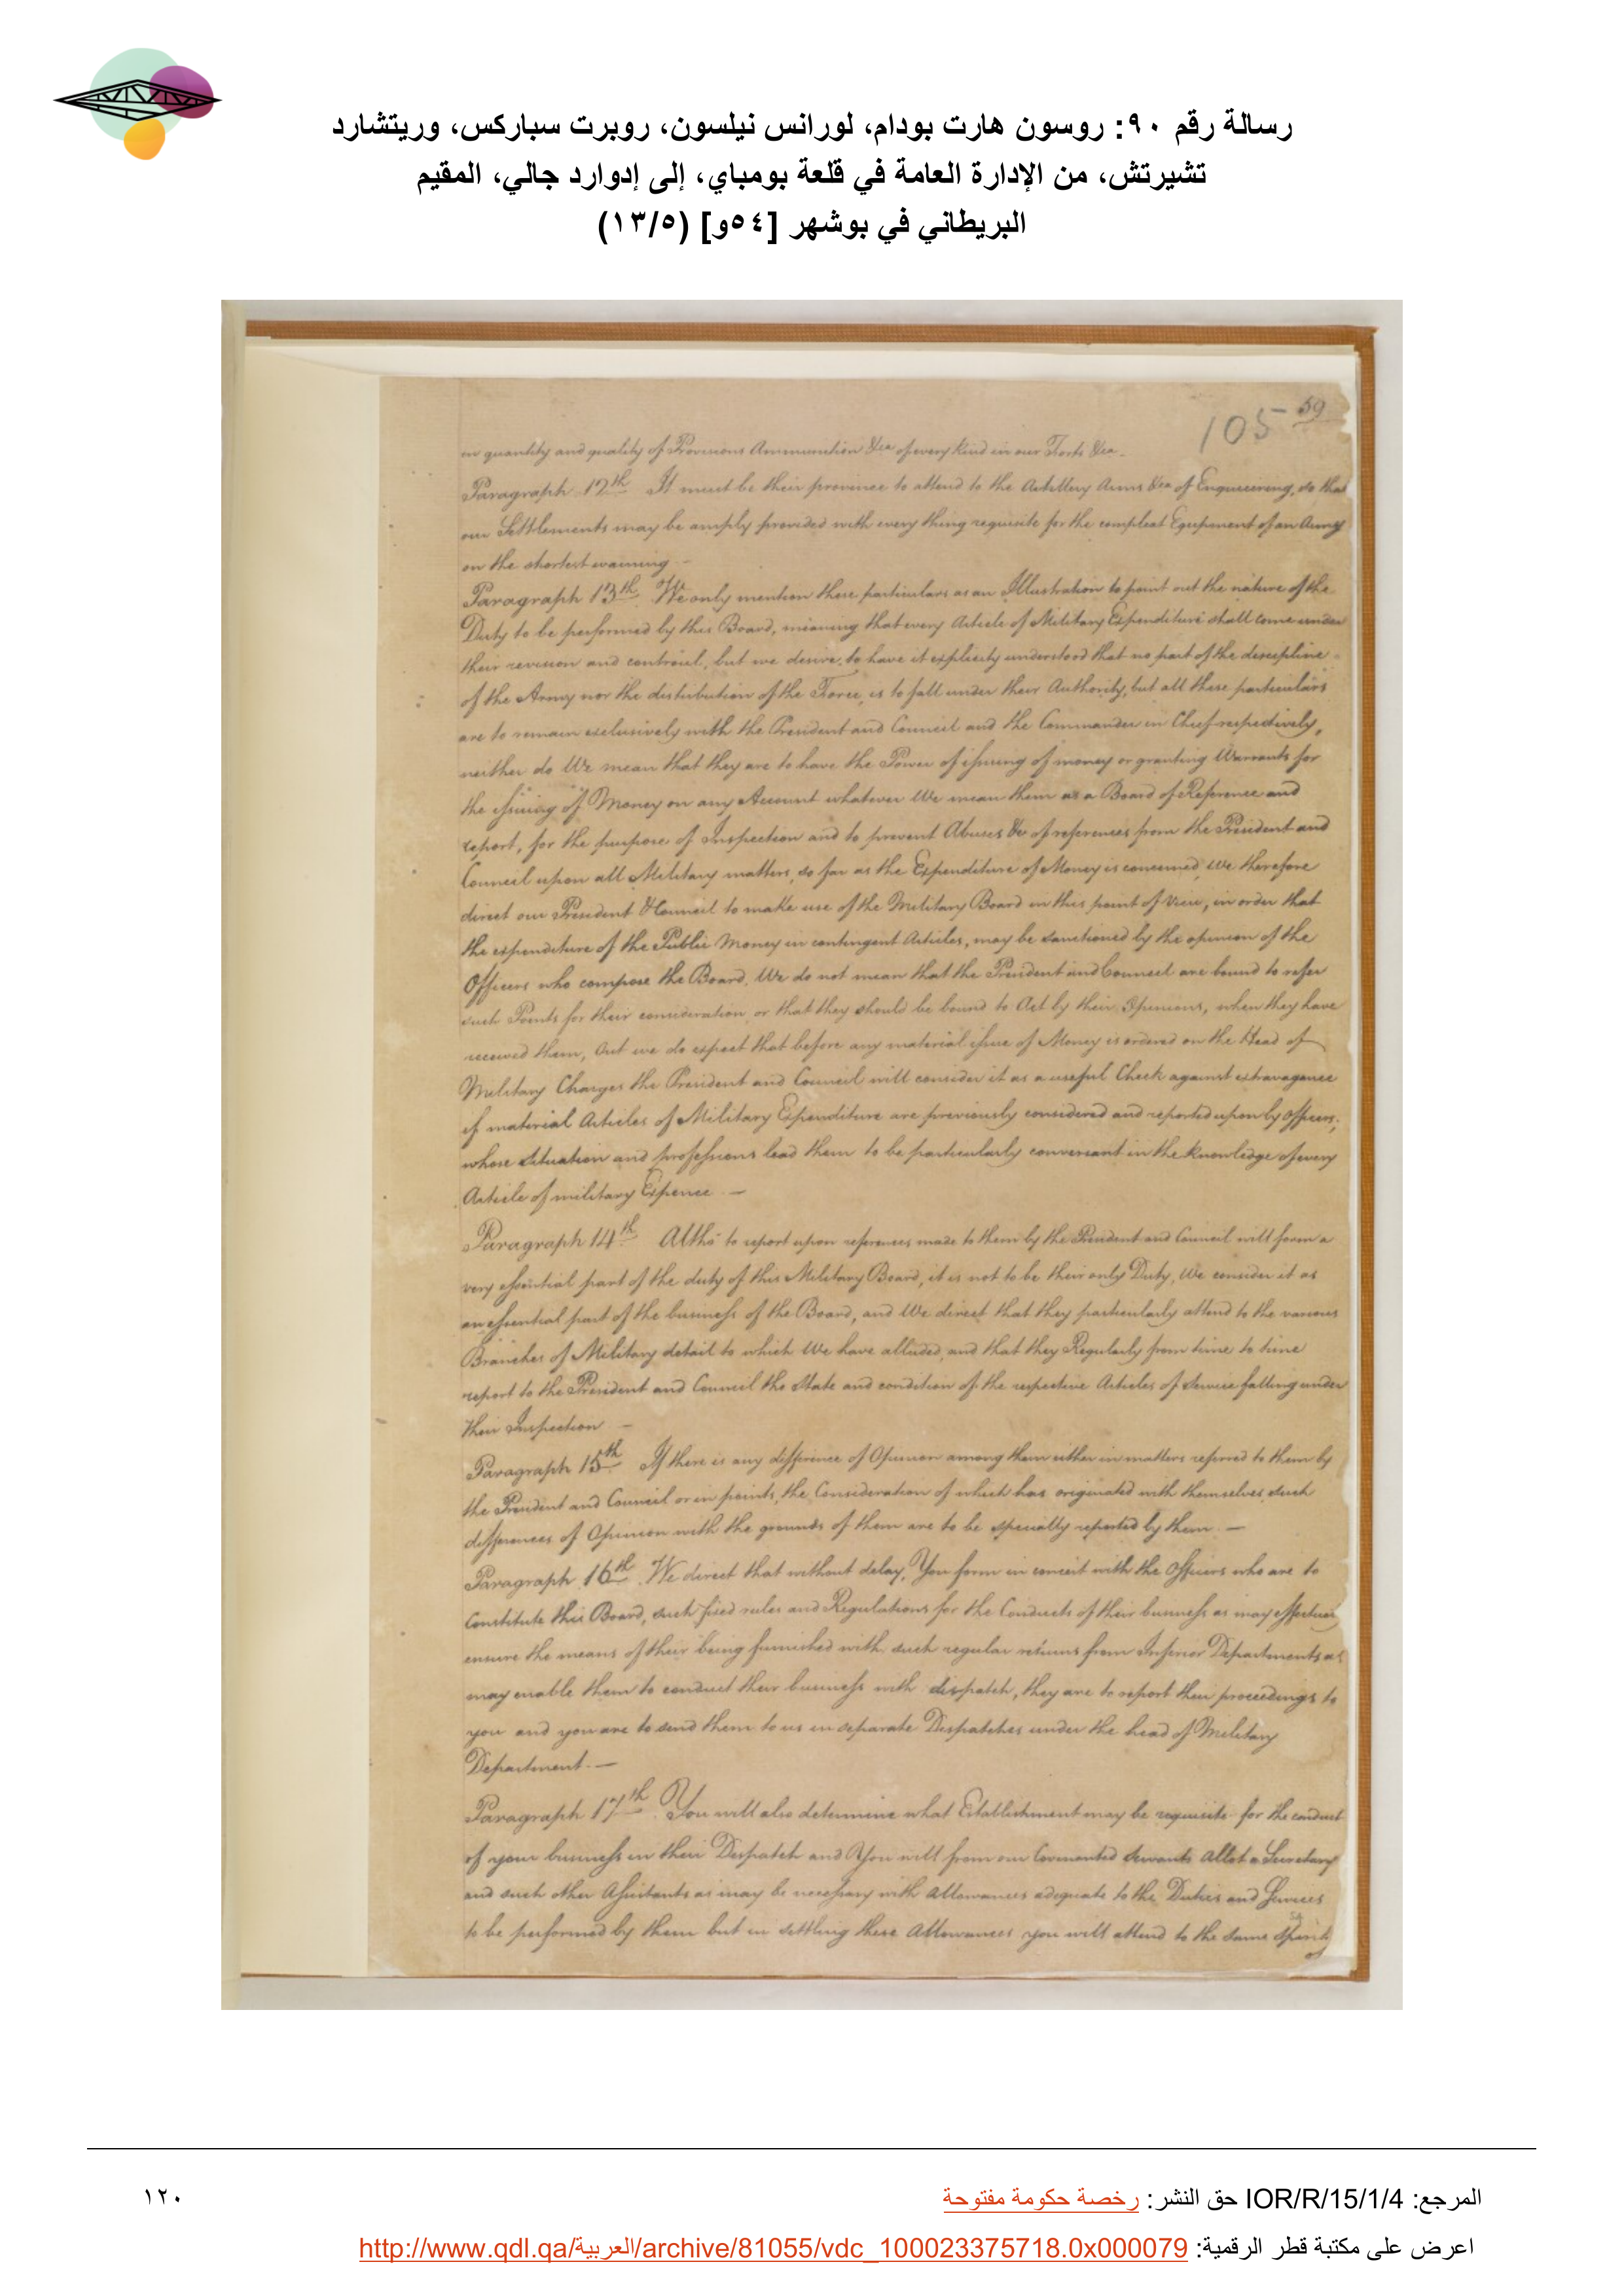 رسالة رقم ٩٠: روسون هارت بودام، لورانس نيلسون، روبرت سباركس، وريتشارد
تشيرتش، من الإدارة العامة في قلعة بومباي، إلى إدوارد جالي، المقيم
البريطاني في بوشهر [٥٤و] (١٣/٥)
105 59
in quantity and quality of Provisions Ammunition &ca of every kind in our Forts &ca.
Paragraph 12th It must be their province to attend to the Artillery Arms &ca of Engineering, so that
our Settlements may be amply provided with every thing requisite for the compleat Equipment of an Army
on the shortest warning
Paragraph 13th We only mention these particulars as an Illustration to point out the nature of the
Duty to be performed by this Board, meaning that every Article of Military Expenditure shall come under
their revision and controul, but we desire to have it explicitly understood that no part of the descipline
of the Army nor the distribution of the Force, is to fall under their Authority, but all these particulars
are to remain exclusively with the President and Council and the Commander in Chief respectively,
neither do We mean that they are to have the Power of issuing of money or granting Warrants for
the issuing of Money on any Account whatever We mean them as a Board of Reference and
report, for the purpose of Inspection and to prevent Abuses & of references from the President and
Council upon all Military matters, so far as the Expenditure of Money is concerned, We therefore
direct our President & Council to make use of the Military Board in this point of View, in order that
the expenditure of the Public Money in contingent Articles, may be sanctioned by the opinion of the
Officers who compose the Board. We do not mean that the President and Council are bound to refer
such Points for their consideration or that they should be bound to Act by their Opinions, when they have
received them, but we do expect that before any material issue of Money is ordered on the Head of
Military Charges the President and Council will consider it as a useful Check against extravagance
if material Articles of Military Expenditure are previously considered and reported upon by Officers,
whose situation and professions lead them to be particularly conversant in the knowledge of every
Article of military Expence —
Paragraph 14th Altho' to report upon references made to them by the President and Council will form a
very essential part of the duty of this Military Board, it is not to be their only Duty, We consider it as
an essential part of the business of the Board, and We direct that they particularly attend to the various
Branches of Military detail to which We have alluded, and that they Regularly from time to time
report to the President and Council the State and condition of the respective Articles of Service falling under
their Inspection —
Paragraph 15th If there is any difference of Opinion among them either in matters referred to them by
the President and Council or in points, the Consideration of which has originated with themselves such
differences of Opinion with the grounds of them are to be specially reported by them —
Paragraph 16th We direct that without delay, You form in concert with the Officers who are to
Constitute this Board, such fixed rules and Regulations for the Conducts of their business as may effectualy
ensure the means of their being furnished with such regular returns from Inferior Departments as
may enable them to conduct their business with dispatch, they are to report their proceedings to
you and you are to send them to us in separate Despatches under the head of Military
Department —
Paragraph 17th You will also determine what Establishment may be requisite for the conduct
of your business in their Despatch and You will from our Covenanted Servants Allot a Secretary
and such other Assistants as may be necessary with Allowances adequate to the Duties and Services
to be performed by them but in settling these Allowances you will attend to the same Spirit
of
المرجع: IOR/R/15/1/4 حق النشر: رخصة حكومة مفتوحة
١٢٠
اعرض على مكتبة قطر الرقمية: http://www.qdl.qa/العربية/archive/81055/vdc_100023375718.0x000079